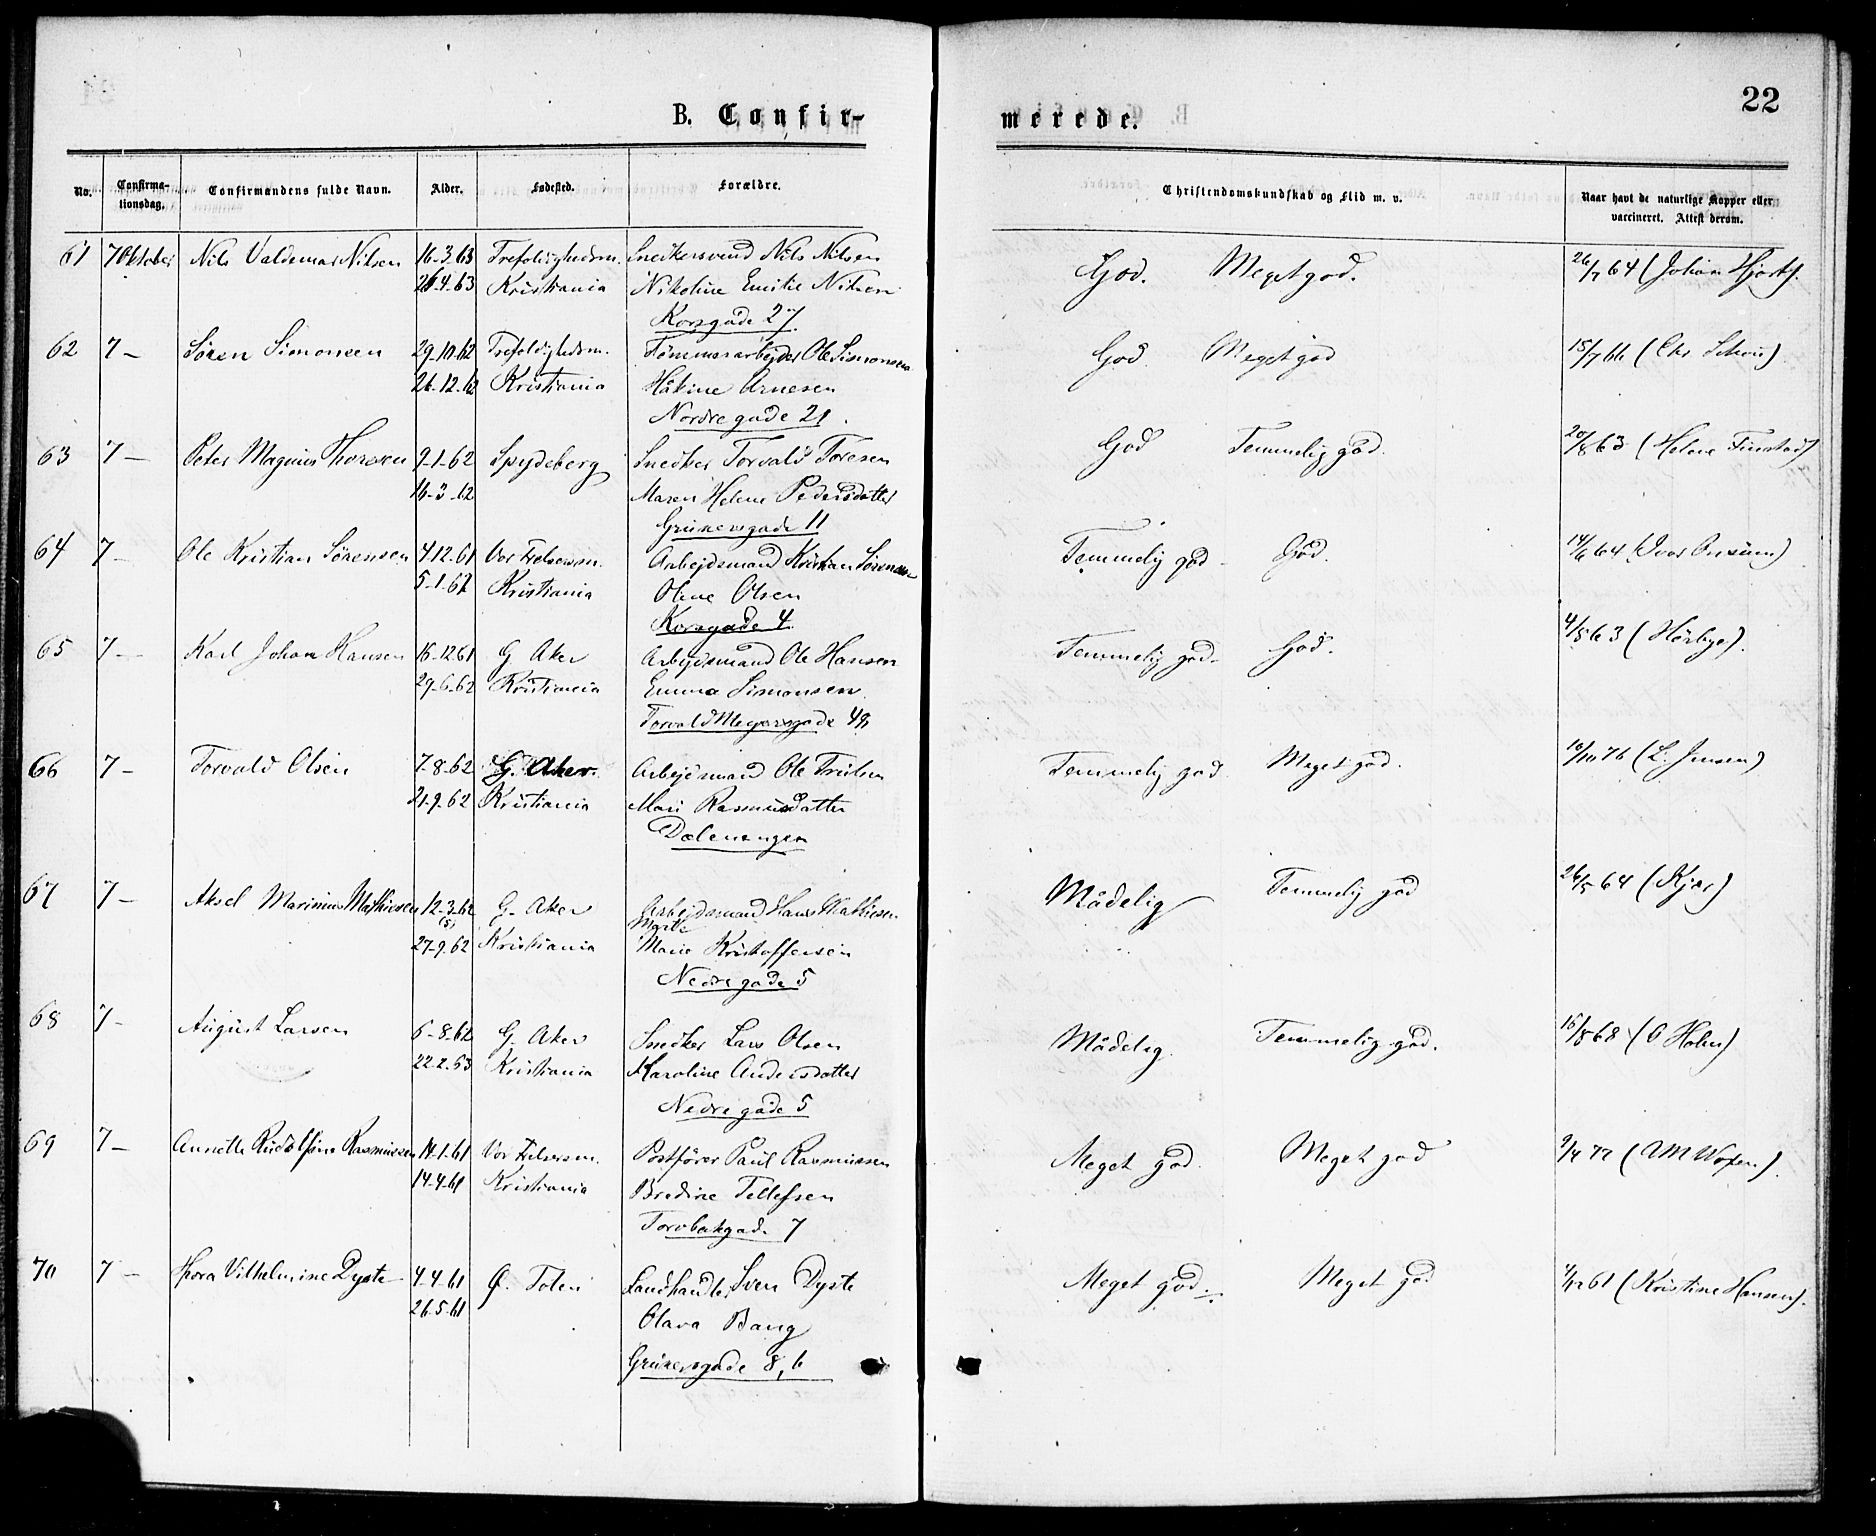 B. Confir-
merede.
22
No.
Confirma-
tionsdag.
Confirmandens fulde Navn.
Alder.
Fødested.
Forældre.
Christendomskundskab og Flid m. v.
Naar havt de naturlige Kopper eller
vaccineret. Attest derom.
61 7 Oktober Nils Valdemar Nilsen 16-3-63 Trefoldighedsm. Snedkersvend Nils Nilsen God. Meget god. 26/7 64 (Johan Hjorth).
26-4-63 Kristiania Nikoline Emilie Nilsen
Korsgade 27.
62 7 – Søren Simonsen 29-10-62 Trefoldighedsm. Tømmerarbejder Ole Simonsen God. Meget god 15/7 66 (Chr. Schou).
26-12-62 Kristiania Håkine Arnesen
Nordregade 21.
63 7 – Peter Magnus Thoresen 9-1-62 Spydeberg Snedker Torvald Toresen God Temmelig god. 20/8 63 (Helene Finstad)
16-3-62 Maren Helene Pedersdatter
Grünersgade 11
64 7 – Ole Kristian Sørensen 4-12-61 Vor Frelsersm. Arbejdsmand Kristian Sørensen Temmelig god – God. 14/6 64
5-1-62 Kristiania Oline Olsen
Korsgade 4.
65 7 – Karl Johan Hansen 16-12-61 G. Aker Arbejdsmand Ole Hansen Temmelig god – God. 4/5 63 (Hørbye).
29-6-62 Kristiania Emma Simonsen
Torvald Meyersgade 49
66 7 – Torvald Olsen 7-8-62 G. Aker. Arbejdsmand Ole Trulsen Temmelig god Meget god. 10/10 76 (L. Jensen)
21-9-62 Kristiania Mari Rasmusdatter
Dælenengen
67 7 – Aksel Marinius Mathiesen 12-3-62 G. Aker Arbejdsmand Hans Mathiesen Mådelig Temmelig god 26/5 64 (Kjær)
(5)
Marte
27-9-62 Kristiania Marie Kristoffersen
Nedregade 5
68 7 – August Larsen 6-8-62 G. Aker Snedker Lars Olsen Mådelig Temmelig god. 15/8 68 (O Holm)
22-2-63 Kristiania Karoline Andersdatter
Nedregade 5
69 7 – Annette Rudolfine Rasmussen 14-1-61 Vor Frelsersm. Postfører Paul Rasmussen Meget god. Meget god 9/4 77
14-4-61 Kristiania Bredine Tellefsen
Torvbakgade 7
70 7 – Thora Vilhelmine Dyste 4-4-61 Ø. Toten Landhandler Sven Dyste Meget god. Meget god 4/12 61 (Kristine Hansen).
26-5-61 Olava Bang
Grünersgade 8, b